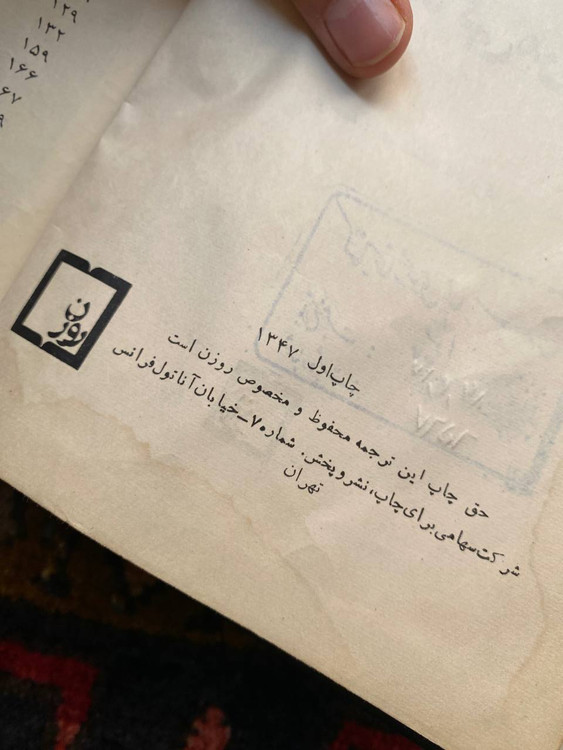 ۱۲۹
۱۳۲
۱۵۹
۱۶۶
روزن
چاپ‌اول ۱۳۴۷
حق چاپ این ترجمه محفوظ و مخصوص روزن است
شرکت‌سهامی‌برای‌چاپ، نشروپخش. شماره۷ـ‌خیابان‌آناتول‌فرانس
تهران